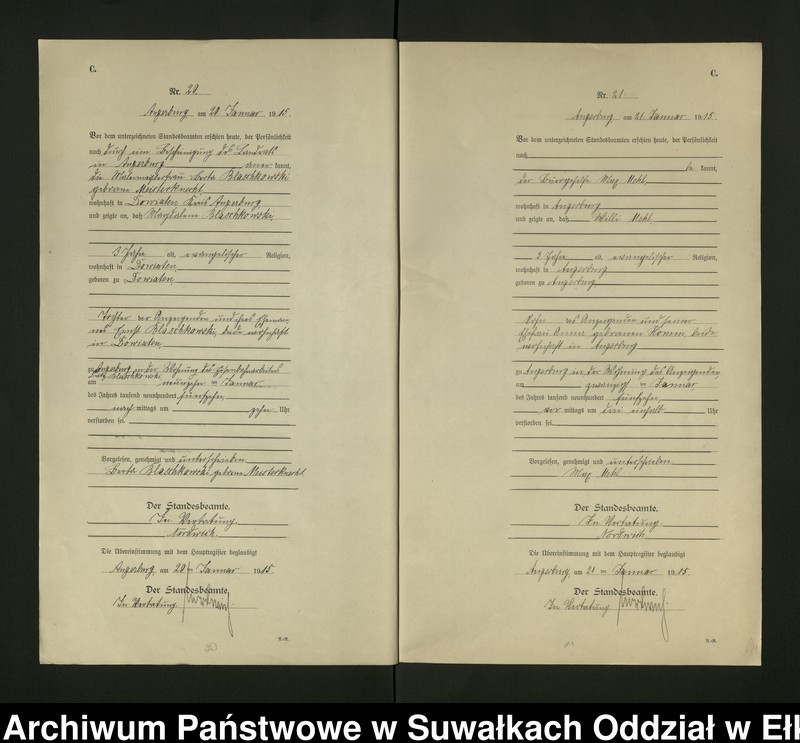 C.
Nr. 20.
Angerburg am 20 Januar 1915.
Vor dem unterzeichneten Standesbeamten erschien heute, der Persönlichkeit
nach durch eine Bescheinigung des Landrats
in Angerburg kannt,
die Malermeisterfrau Berta Blaschkowski
geborene Meisterknecht
wohnhaft in Dowiaten Kreis Angerburg
und zeigte an, daß Magdalena Blaschkowski,
3 Jahre alt, evangelischer Religion,
wohnhaft in Dowiaten,
geboren zu Dowiaten,
Tochter der Anzeigenden und ihres Eheman-
nes Ernst Blaschkowski, beide wohnhaft
in Dowiaten,
zu Angerburg in der Wohnung des
Blaschkowski
am neunzehn ten Januar
des Jahres tausend neunhundert fünfzehn,
nach mittags um zehn Uhr
verstorben sei.
Vorgelesen, genehmigt und unterschrieben
Berta Blaschkowski, geborene Meisterknecht
Der Standesbeamte.
In Vertretung.
Die Übereinstimmung mit dem Hauptregister beglaubigt
Angerburg, am 20 ten Januar 1915.
Der Standesbeamte.
In Vertretung.
C.
Nr. 21
Angerburg am 21 Januar 1915.
Vor dem unterzeichneten Standesbeamten erschien heute, der Persönlichkeit
nach
be kannt,
der Bürogehilfe Max
wohnhaft in Angerburg
und zeigte an, daß Willi
2 Jahre alt, evangelischer Religion,
wohnhaft in Angerburg
geboren zu Angerburg
Sohn des Anzeigenden und seiner
Ehefrau Anna geborenen beide
wohnhaft in Angerburg
zu Angerburg in der Wohnung des Anzeigenden,
am zwanzigsten Januar
des Jahres tausend neunhundert fünfzehn,
vor mittags um drei einhalb Uhr
verstorben sei.
Vorgelesen, genehmigt und unterschrieben
Max
Der Standesbeamte.
In Vertretung.
Die Übereinstimmung mit dem Hauptregister beglaubigt
Angerburg, am 21 ten Januar 1915.
Der Standesbeamte.
In Vertretung
Archiwum Państwowe w Suwałkach Oddział w Ełk